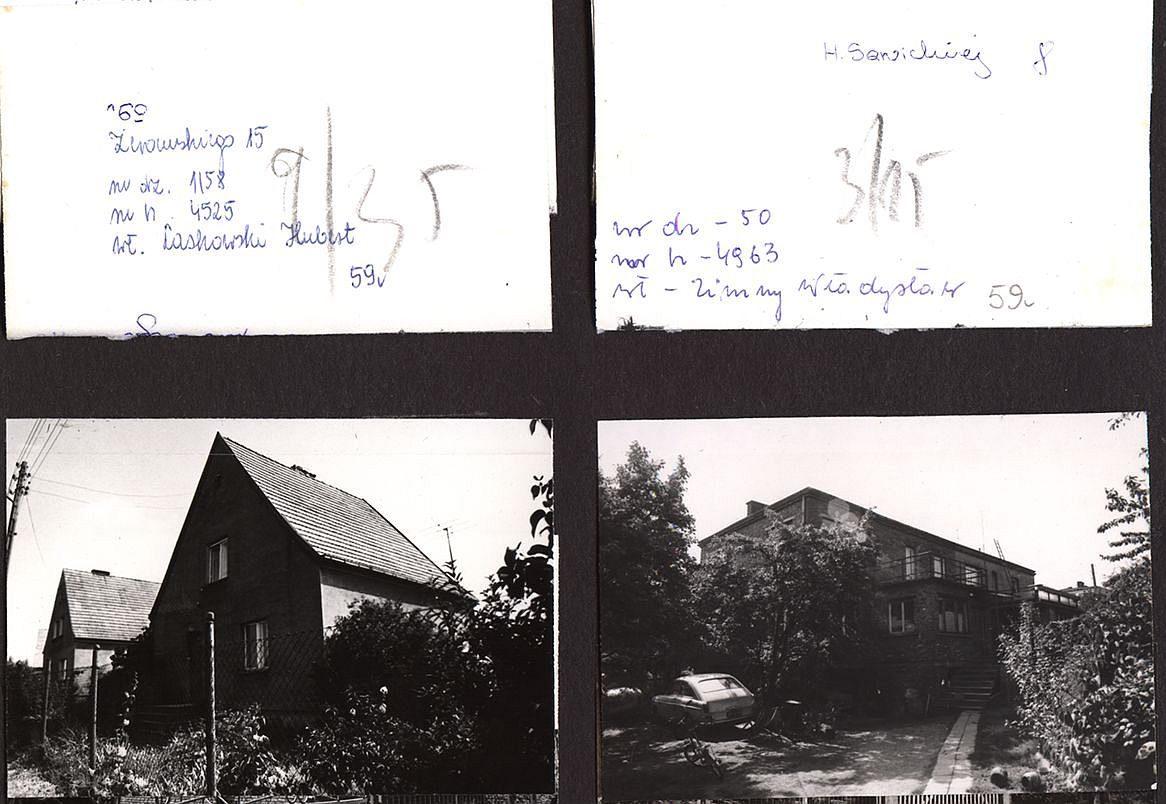 Żeromskiego 15
9/35
nr dz. 1158
nr h. 4525
wł. Laskowski Hubert
59r
H. Sawickiej 8
3/
nr dz - 50
nr h - 4963
wł - Zimny Władysław 59r